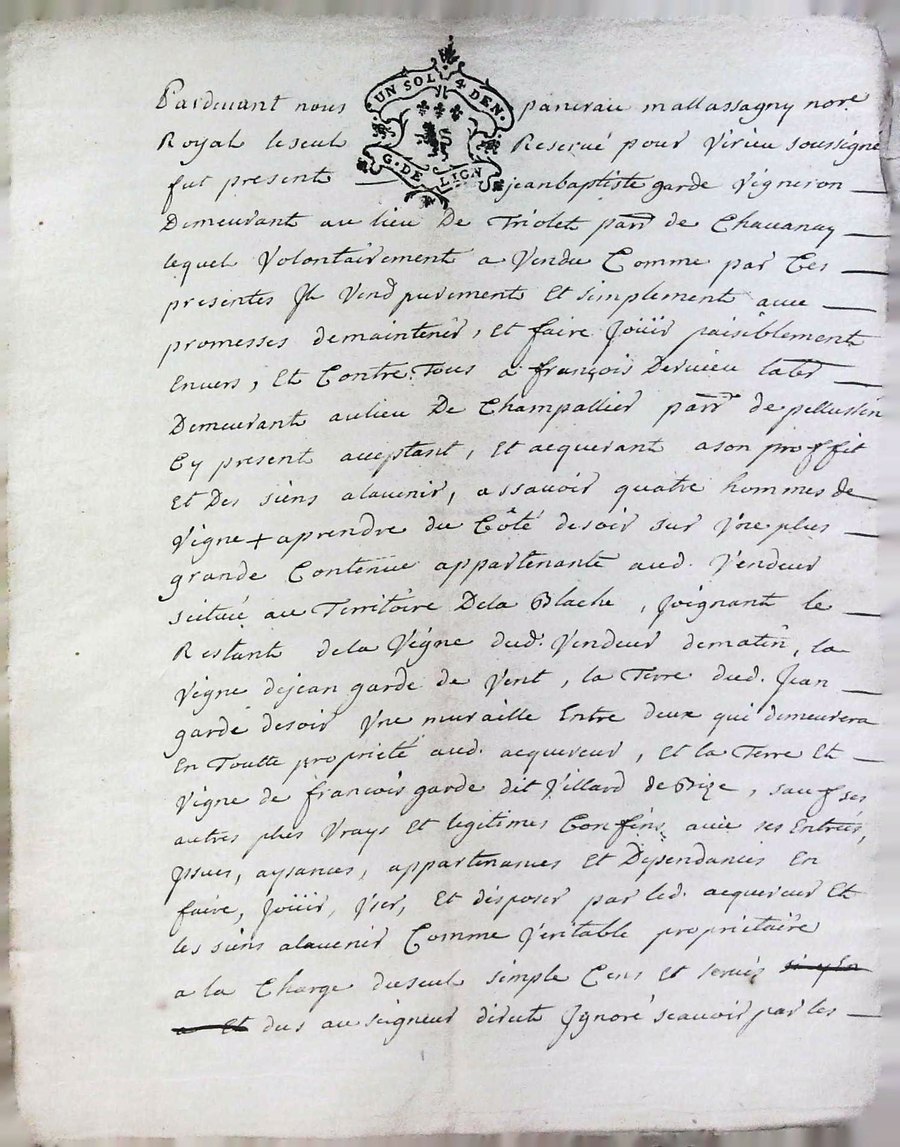 UN SOL 4 DEN.
G. DE LION
Pardevant nous pancrace mallassagny nore
Royal le seul Reservé pour Virieu soussigné
fut present jeanbaptiste garde Vigneron
Demeurant au lieu De Triolet parr de Chavanay
lequel Volontairement a Vendu Comme par Ces
presentes Il Vend purement Et simplement avec
promesses demaintenir, Et faire Joüir paisiblement
Envers, Et Contre Tous a françois Dervieu
Demeurant aulieu De Champallier parr de pellussin
Cy present acceptant, Et acquerant ason proffit
Et Des siens alavenir, assavoir quatre hommes de
Vigne + aprendre du Côté desoir sur Vne plus
grande Contenue appartenante aud. Vendeur
scituée au Territoire Dela Blache, Joignant le
Restant dela Vigne dud. Vendeur dematin, la
Vigne dejean garde de Vent, la Terre dud. Jean
garde desoir Vne muraille Entre deux qui demeurera
En Toutte propriété aud. acquereur, Et la Terre Et
Vigne de francois garde dit Villard de Bize, sauf ses
autres plus Vrays Et legitimes Confins, avec ses Entrées,
Issues, aysances, appartenances Et Dependances En
faire, Joüir, Vser, Et disposer par led. acquereur Et
les siens alavenir Comme Veritable propriétaire
a la Charge duseul simple Cens Et servis si y En
a Et dus au seigneur direct Ignoré scavoir par les